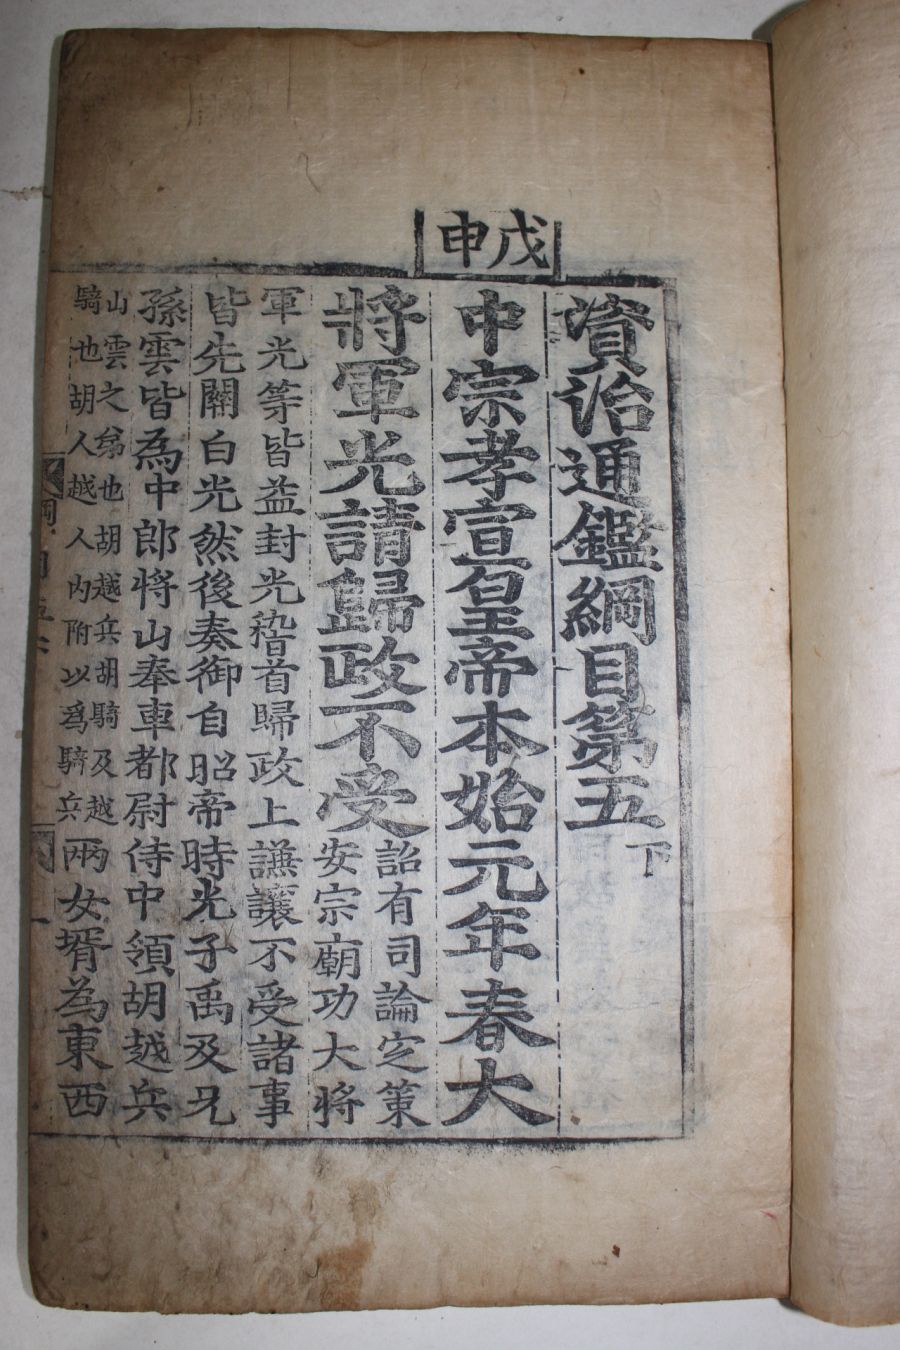 戊申
資治通鑑綱目第五下
中宗孝宣皇帝本始元年春大
將軍光請歸政不受
詔有司論定策
安宗廟功大将
軍光等皆益封光稽首歸政上謙讓不受諸事
皆先關白光然後奏御自昭帝時光子禹及兄
孫雲皆為中郎將山奉車都尉侍中領胡越兵
山雲之弟也胡越兵胡騎及越
騎也胡人越人內附以爲騎兵
兩女壻為東西